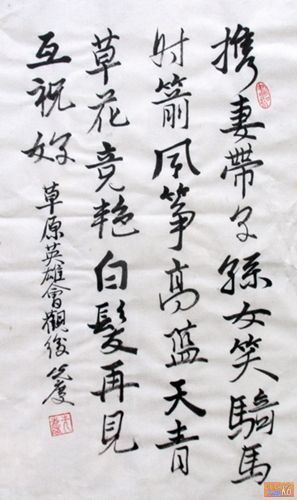 携妻帶子孫女笑騎馬
射箭风筝高蓝天青
草花竞艳白髮再見
互祝好
草原英雄會觀後